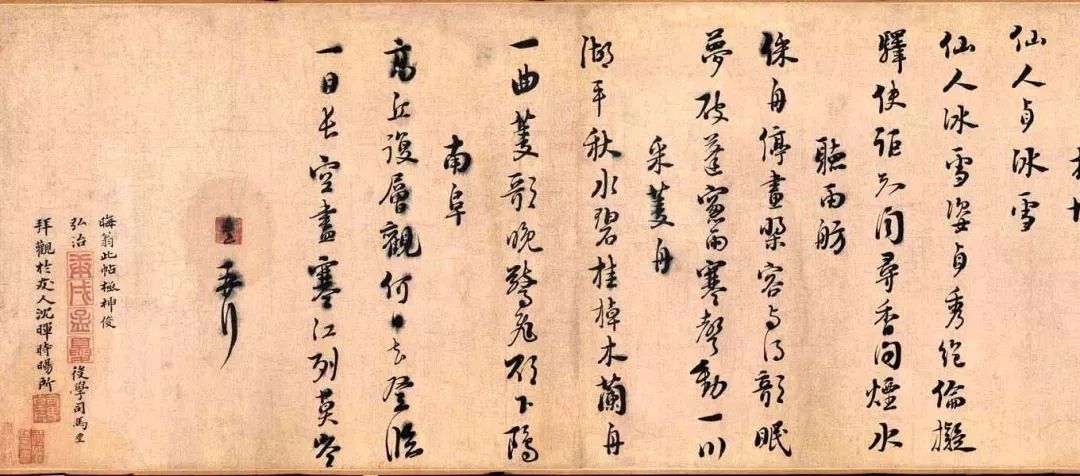 仙人貞冰雪
仙人冰雪姿貞秀絕倫擬
驛使詎知聞尋香問煙水
聽雨舫
綵舟停畫槳容與得欹眠
夢破篷窗雨寒聲動一川
采菱舟
湖平秋水碧桂棹木蘭舟
一曲菱歌晚驚飛欲下鷗
南阜
高丘復層觀何日去登臨
一目長空盡寒江列莫岑
熹再拜
晦翁此帖極神俊
弘治 後學司馬垔
拜觀於友人沈暉時暘所